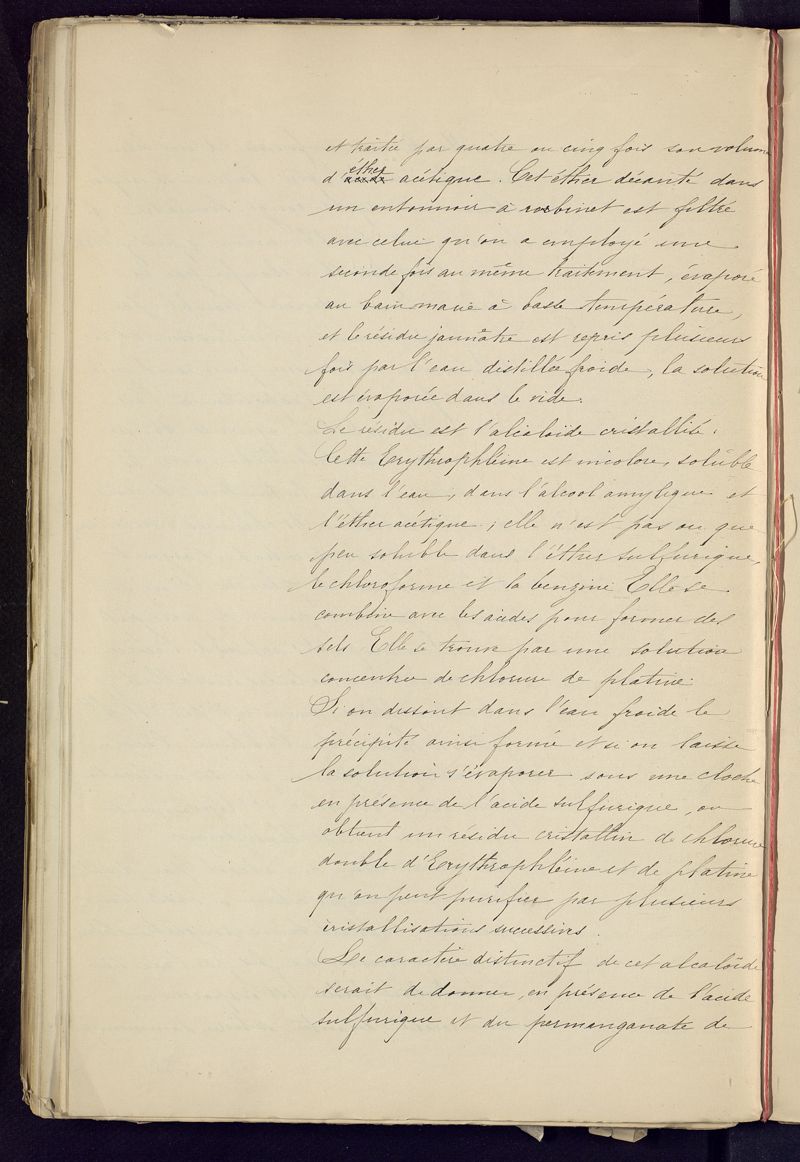 et traitée par quatre ou cinq fois son volume
d'éther acétique. Cet éther décanté dans
un entonnoir à robinet est filtré
avec celui qu'on a employé une
seconde fois au même traitement, évaporé
au bain marie à basse température,
et le résidu jaunâtre est repris plusieurs
fois par l'eau distillée froide, la solution
est évaporée dans le vide.
Le résidu est l'alcaloïde cristallisé.
Cette Erythrophléine est incolore, soluble
dans l'eau, dans l'alcool amylique et
l'éther acétique; elle n'est pas ou que
peu soluble dans l'éther sulfurique,
le chloroforme et la benzine. Elle se
combine avec les acides pour former des
sels Elle se trouve par une solution
concentrée de chlorure de platine.
Si on dissout dans l'eau froide le
précipité ainsi formé et si on laisse
la solution s'évaporer sous une cloche
en présence de l'acide sulfurique, on
obtient un résidu cristallin de chlorure
double d'Erythrophléine et de platine
qu'on peut purifier par plusieurs
cristallisations successives.
Le caractère distinctif de cet alcaloïde
serait de donner, en présence de l'acide
sulfurique et du permanganate de